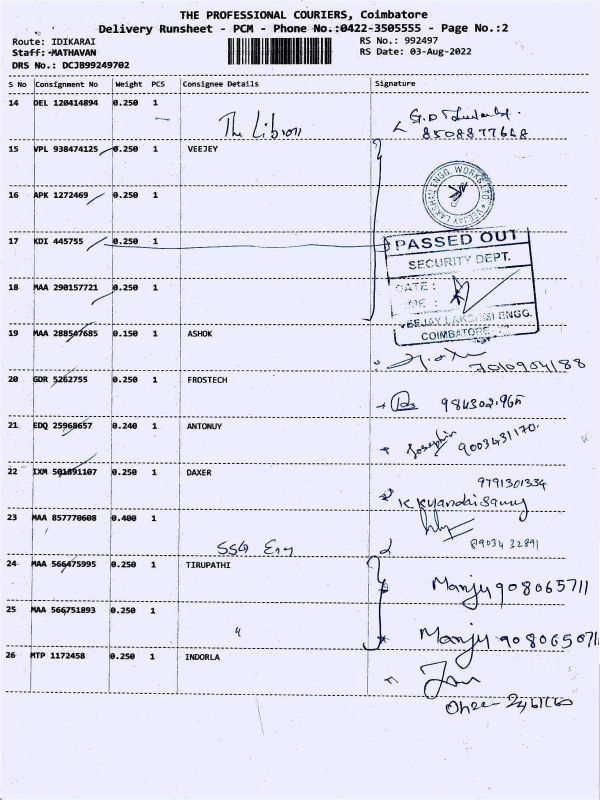 THE PROFESSIONAL COURIERS, Coimbatore
Delivery Runsheet - PCM - Phone No.:0422-3505555 - Page No.:2
Route: IDIKARAI
RS No.: 992497
Staff: MATHAVAN
RS Date: 03-Aug-2022
DRS No.: DCJB99249702
S No Consignment No Weight PCS Consignee Details Signature
14 DEL 120414894 0.250 1
The
8508877668
15 VPL 938474125 0.250 1 VEEJEY
16 APK 1272469 0.250 1
VEEJAY LAKSHMI ENGG. WORKS LTD
17 KDI 445755 0.250 1
PASSED OUT
SECURITY DEPT.
18 MAA 290157721 0.250 1
DATE :
VEEJAY LAKSHMI ENGG.
COIMBATORE
19 MAA 288547685 0.150 1 ASHOK
7010904188
20 GDR 5262755 0.250 1 FROSTECH
21 EDQ 25968657 0.240 1 ANTONUY
Josephin 9003431170
22 IXM 501891107 0.250 1 DAXER
9791301334
23 MAA 857770608 0.400 1
SSG Eng
8903432891
24 MAA 566475995 0.250 1 TIRUPATHI
Manju 908065711
25 MAA 566751893 0.250 1
Manju
26 MTP 1172458 0.250 1 INDORLA